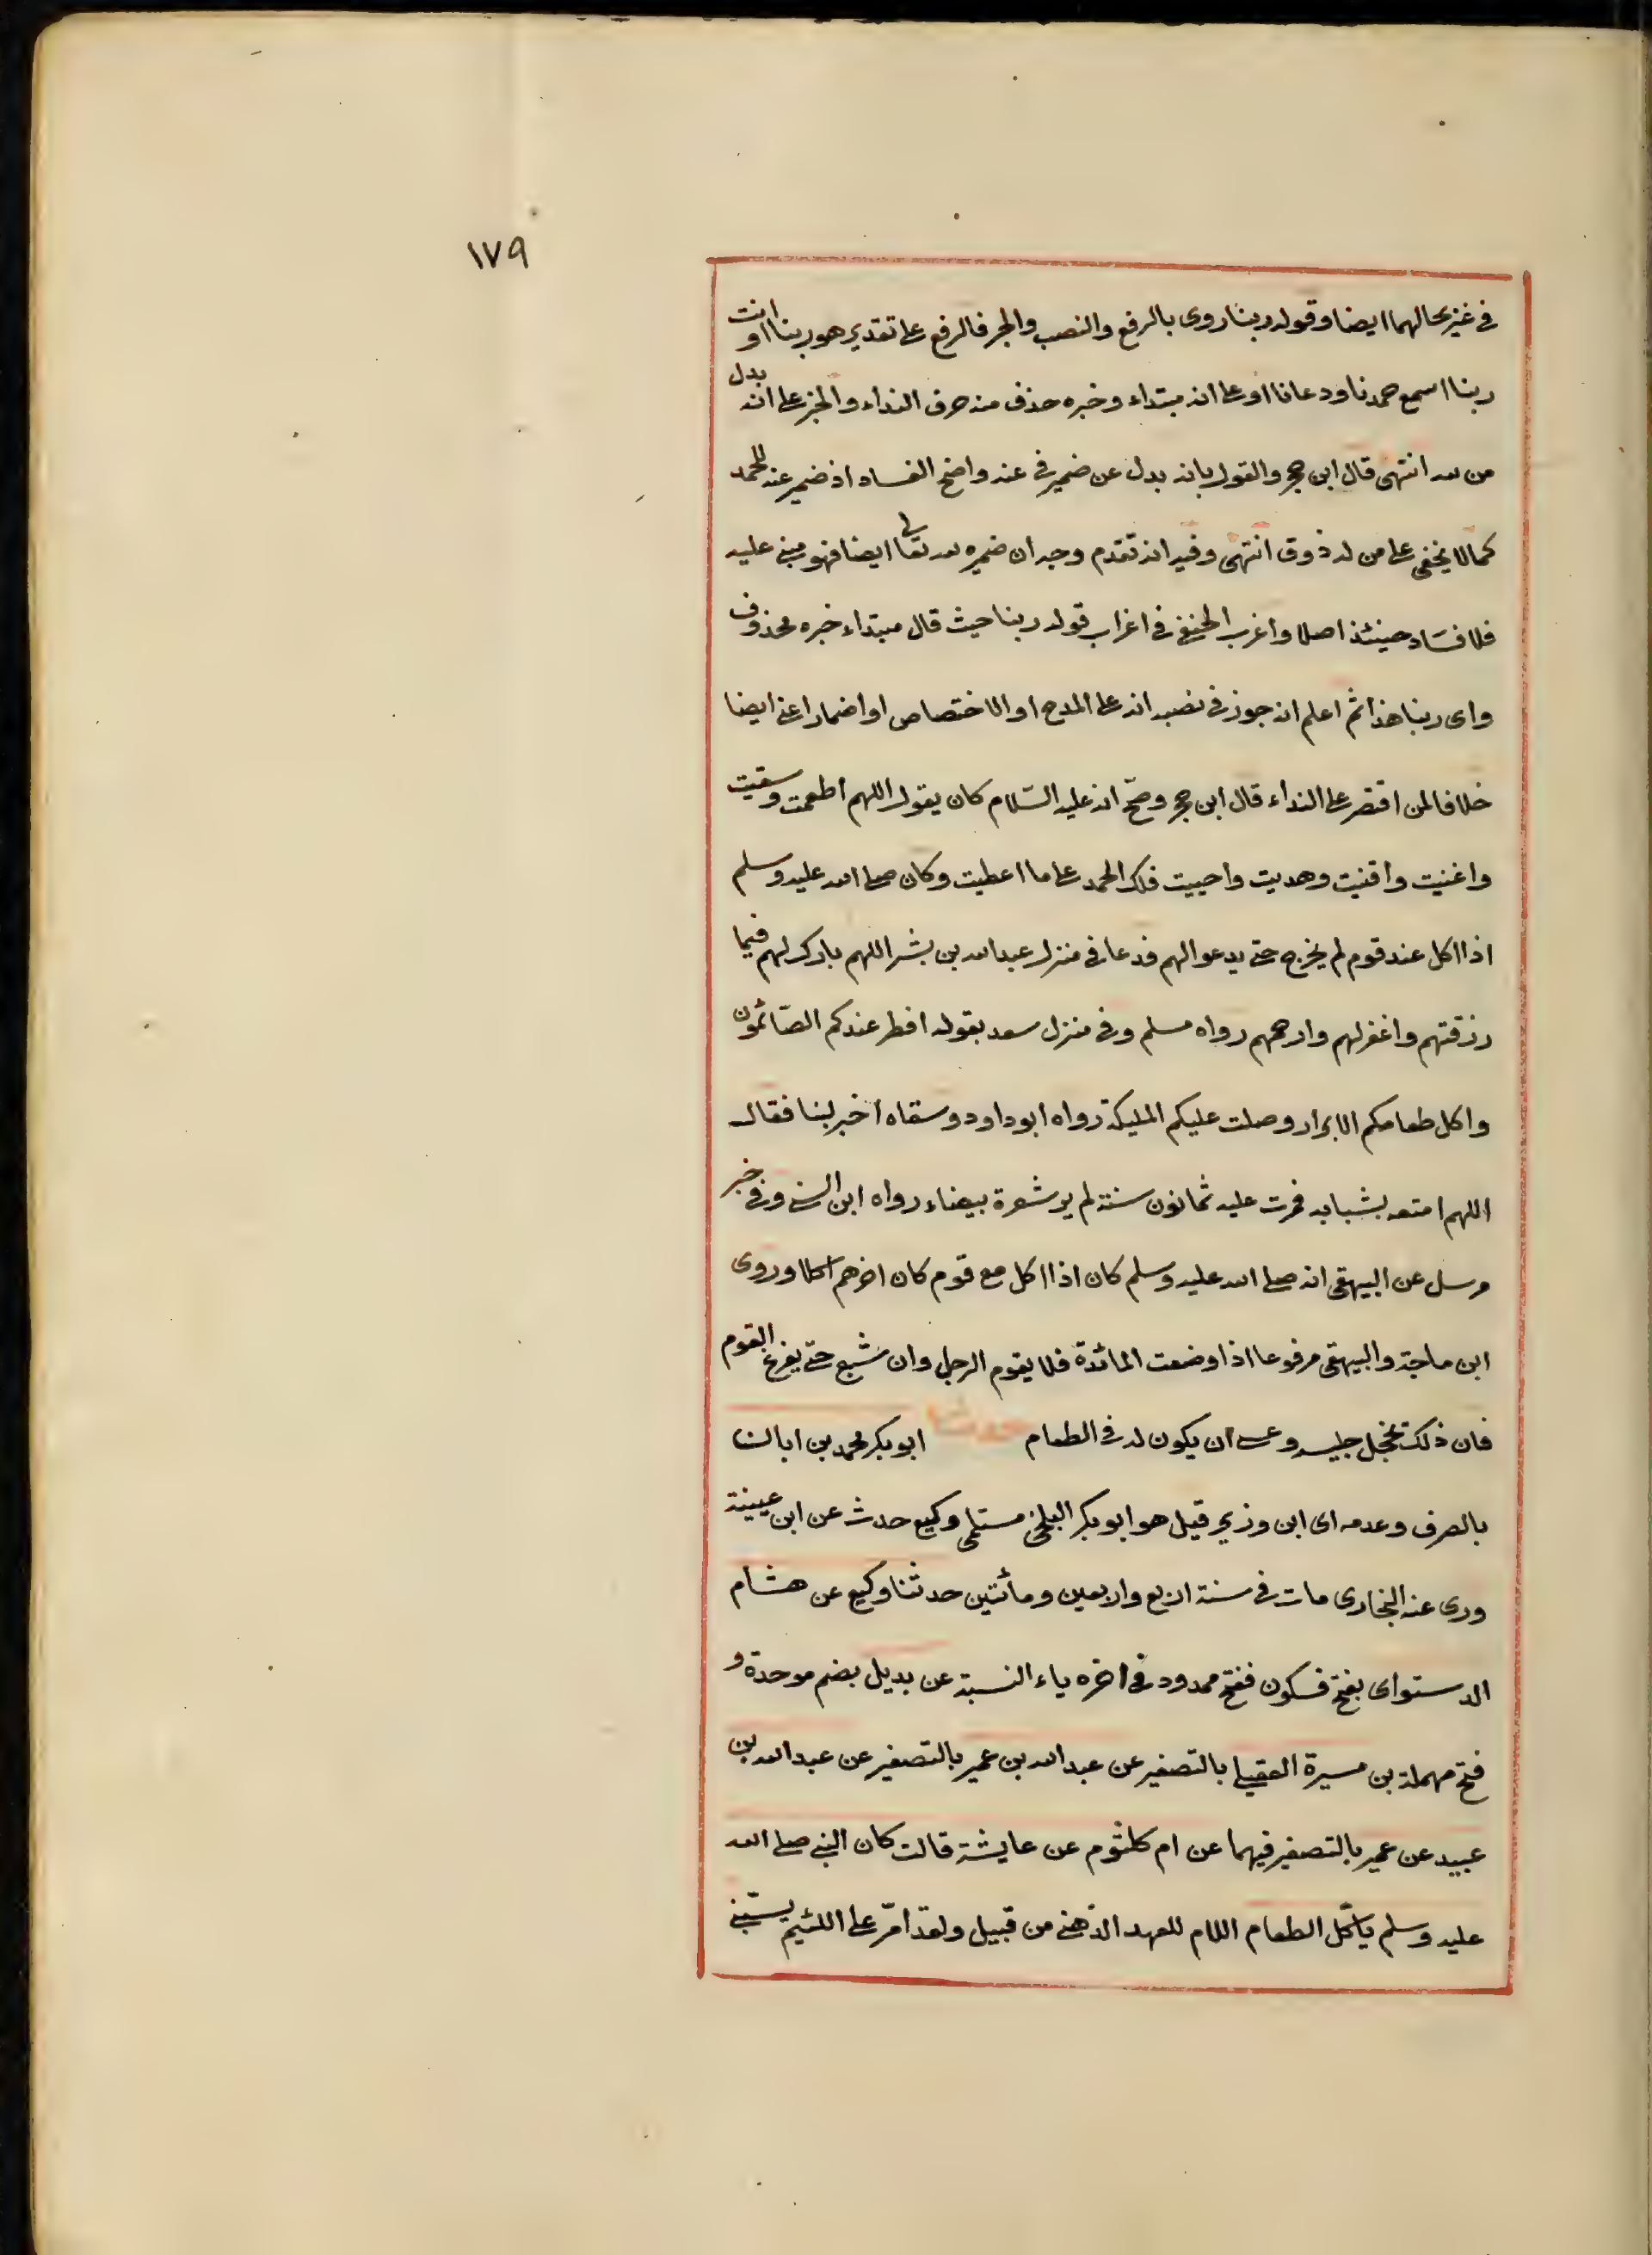 ١٧٩
في غيري حالهما ايضا وقوله ربنا روى بالرفع والنصب والجر فالرفع على تقدير هو ربنا او انت
ربنا اسمع حمدنا ودعانا او على انه مبتداء وخبره حذف منه حرف النداء والجر على انه بدل
من لله انتهى قال ابن حجر والقول بانه بدل عن ضمير في عنه واضح الفساد اذ ضمير عنه للحمد
كما لا يخفى على من له ذوق انتهى وفيه انه تقدم وجه ان ضميره لله تعالى ايضا فهو مبني عليه
فلا فساد حينئذ اصلا واغرب الحنفي في اعراب قوله ربنا حيث قال مبتداء خبره محذوف
واى ربنا هذا ثم اعلم انه جوز في نصبه انه على المدح او الاختصاص او اضمار اعني ايضا
خلافا لمن اقتصر على النداء قال ابن حجر وصحّ انه عليه السّلام كان يقول اللهم اطعمت وسقيت
واغنيت واقنيت وهديت واحييت فلك الحمد على ما اعطيت وكان صلى الله عليه وسلم
اذا اكل عند قوم لم يخرج حتى يدعوا لهم فدعا في منزل عبدالله بن بشر اللهم بارك لهم فيما
رزقتهم واغفر لهم وارحمهم رواه مسلم وفي منزل سعد بقوله افطر عندكم الصّائمون
واكل طعامكم الابرار وصلت عليكم المليكة رواه ابو داود وسقاه اخر لبنا فقال
اللهم امتعه بشبابه فمرت عليه ثمانون سنة لم ير شعرة بيضاء رواه ابن السني وفي خبر
مرسل عن البيهقي انه صلى الله عليه وسلم كان اذا اكل مع قوم كان اخرهم اكلا وروى
ابن ماجة والبيهقي مرفوعا اذا وضعت المائدة فلا يقوم الرجل وان شبع حتى يفرغ القوم
فان ذلك يخجل جليسه وعسى ان يكون له في الطعام حدثنا ابو بكر محمد بن ابان
بالصرف وعدمه اى ابن وزير قيل هو ابو بكر البلخي مستملى وكيع حدث عن ابن عيينة
وروى عنه البخارى مات في سنة اربع واربعين ومأئتين حدثنا وكيع عن هشام
الدستواى بفتح فسكون ففتح ممدود في اخره ياء النسبة عن بديل بضم موحدة و
فتح مهملة بن ميسرة العقيلي بالتصغير عن عبدالله بن عمير بالتصغير عن عبدالله بن
عبيد عن عمير بالتصغير فيهما عن ام كلثوم عن عايشة قالت كان النبي صلى الله
عليه وسلم ياكل الطعام اللام للعهد الذهني من قبيل ولقد امرّ على اللئيم يسبّني